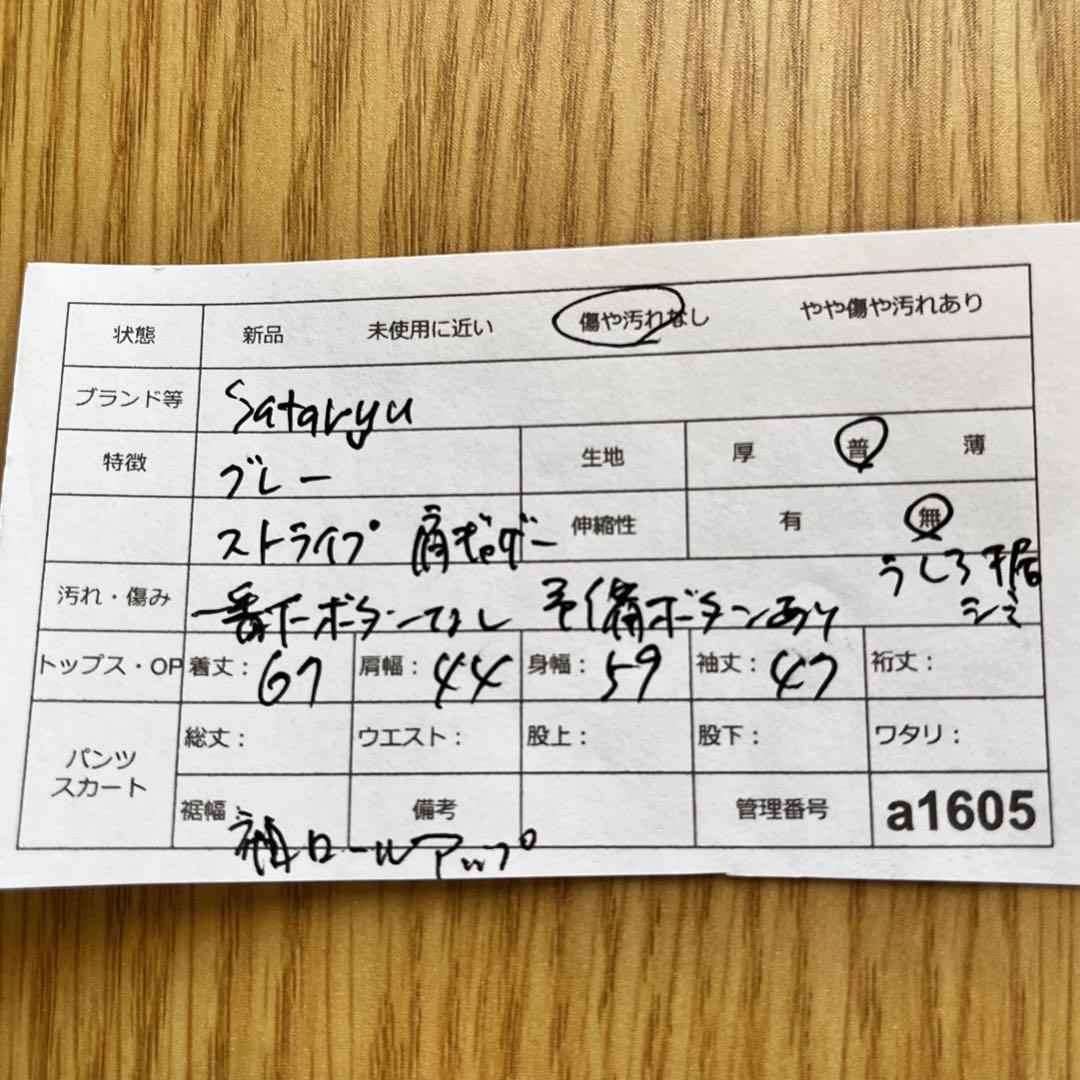 状態 新品 未使用に近い 傷や汚れなし やや傷や汚れあり
ブランド等 Sataryu
特徴 グレー 生地 厚 普 薄
ストライプ 肩ギャザー 伸縮性 有 無
汚れ・傷み 一番下ボタンなし 予備ボタンあり うしろ裾
シミ
トップス・OP 着丈：67 肩幅：44 身幅：59 袖丈：47 裄丈：
パンツ 総丈： ウエスト： 股上： 股下： ワタリ：
スカート 裾幅 備考 管理番号 a1605
袖ロールアップ